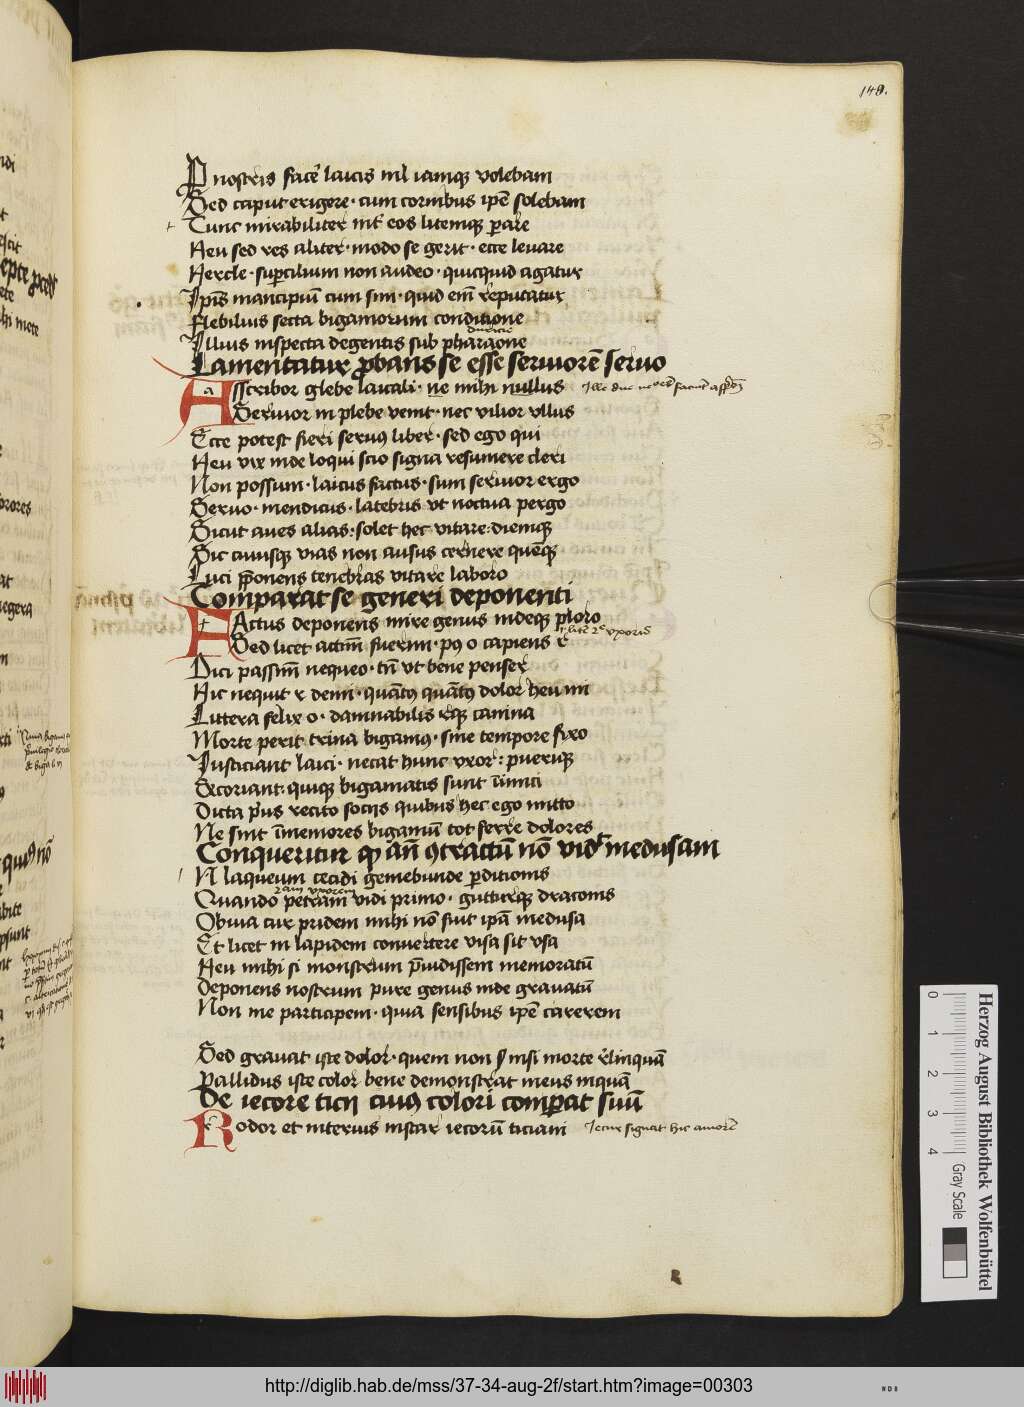 149.
P nostris facere laicis nil iamque volebam
Sed caput erigere · cum cornibus ipse solebam
Tunc mirabiliter inter eos litemque parare
Heu sed res aliter · modo se gerit · ecce levare
Hercle · supercilium non audeo · quicquid agatur
Ipsis mancipium cum sim · quid enim reputatur
Flebilius secta bigamorum conditione
duricie
Illius inspecta degentis sub pharaone
Lamentatur probans se esse seruiorem seruo
Asscribor glebe laicali · ne mihi nullus
Seruior in plebe venit · nec vilior vllus
Ecce potest fieri seruus liber · sed ego qui
Heu vix inde loqui scio signa resumere cleri
Non possum · laicus factus · sum seruior ergo
Seruo · mendicus · latebris vt noctua pergo
Sicut aues alias : solet hec vitare : diemque
Sic ciuiusque vias non ausus cernere quemque
Luci preponens tenebras vitare laboro
Comparat se generi deponenti
Factus deponens mire genus indeque ploro
Sed licet actiuum fuerim · post o capiens r
Dici passiuum nequeo · tamen vt bene penser
Hic nequit r demi · quantus quantus dolor heu mi
Littera felix o · damnabilis rque canina
Morte perit trina bigamus · sine tempore fixo
Iusticiant laici · necat hunc vxor : puerique
Excoriant · quique bigamatis sunt inimici
Dicta prius recito sociis quibus hec ego mitto
Ne sint immemores bigamum tot ferre dolores
Conqueritur quod ante contractum non viderit medusam
IN laqueum cecidi gemebunde perditionis
Quando petram vidi primo · gutturque draconis
Obuia cur pridem mihi non fuit ipsa medusa
Et licet in lapidem conuertere visa sit vsa
Heu mihi si monstrum preuidissem memoratum
Deponens nostrum pure genus inde grauatum
Non me participem · quia sensibus ipse carerem
Sed grauat iste dolor · quem non nisi morte relinquam
Pallidus iste color bene demonstrat meus inquam
De iecore ticii cuius colori comparat suum
Rodor et interius instar iecorum ticiani
Iecur signat hic amorem
Herzog August Bibliothek Wolfenbüttel
Gray Scale
0 1 2 3 4
http://diglib.hab.de/mss/37-34-aug-2f/start.htm?image=00303